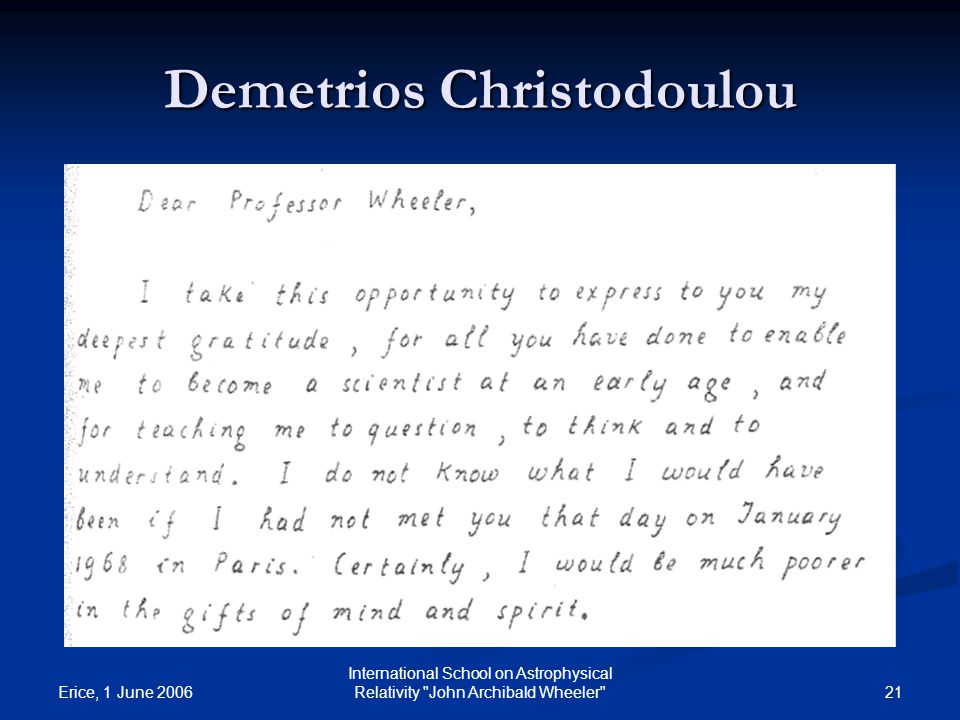 Demetrios Christodoulou
Dear Professor Wheeler,
I take this opportunity to express to you my
deepest gratitude, for all you have done to enable
me to become a scientist at an early age, and
for teaching me to question, to think and to
understand. I do not know what I would have
been if I had not met you that day on January
1968 in Paris. Certainly, I would be much poorer
in the gifts of mind and spirit.
Erice, 1 June 2006
International School on Astrophysical
Relativity "John Archibald Wheeler"
21